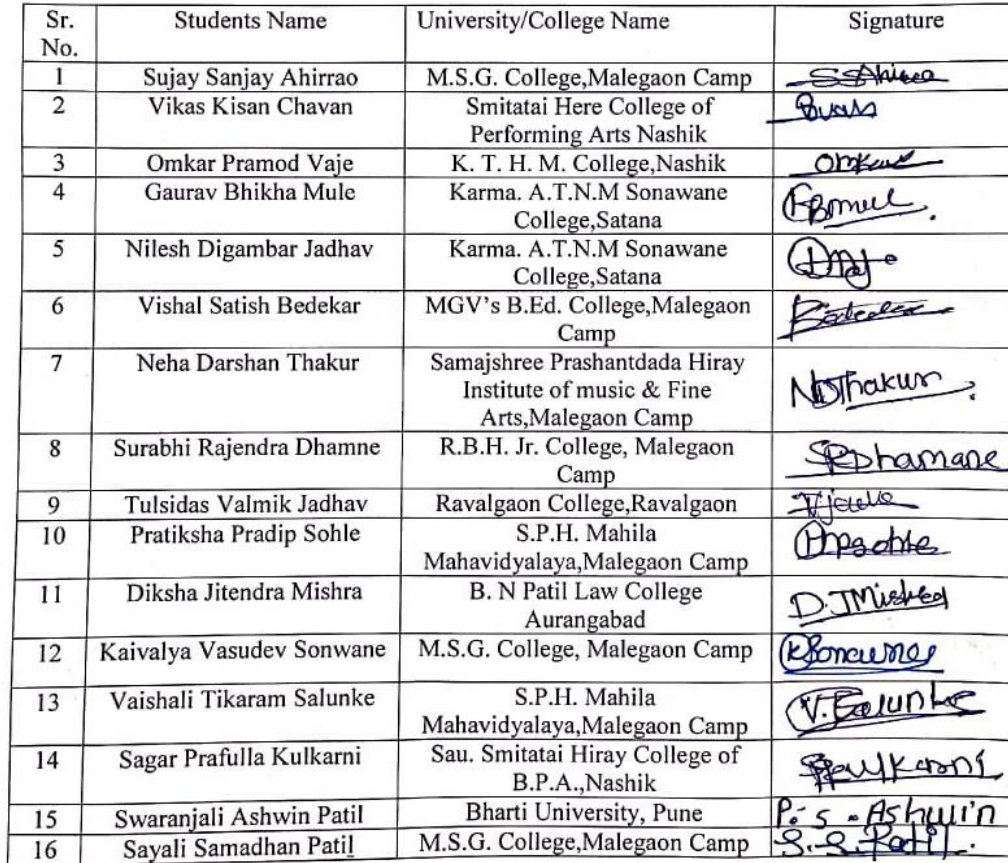 Sr. No. Students Name University/College Name Signature
1 Sujay Sanjay Ahirrao M.S.G. College,Malegaon Camp
2 Vikas Kisan Chavan Smitatai Here College of
Performing Arts Nashik
3 Omkar Pramod Vaje K. T. H. M. College,Nashik Omkar
4 Gaurav Bhikha Mule Karma. A.T.N.M Sonawane
College,Satana
5 Nilesh Digambar Jadhav Karma. A.T.N.M Sonawane
College,Satana
6 Vishal Satish Bedekar MGV's B.Ed. College,Malegaon
Camp
7 Neha Darshan Thakur Samajshree Prashantdada Hiray
Institute of music & Fine
Arts,Malegaon Camp NDThakur
8 Surabhi Rajendra Dhamne R.B.H. Jr. College, Malegaon
Camp SRDhamane
9 Tulsidas Valmik Jadhav Ravalgaon College,Ravalgaon
10 Pratiksha Pradip Sohle S.P.H. Mahila
Mahavidyalaya,Malegaon Camp
11 Diksha Jitendra Mishra B. N Patil Law College
Aurangabad D.JMishra
12 Kaivalya Vasudev Sonwane M.S.G. College, Malegaon Camp
13 Vaishali Tikaram Salunke S.P.H. Mahila
Mahavidyalaya,Malegaon Camp V.Salunke
14 Sagar Prafulla Kulkarni Sau. Smitatai Hiray College of
B.P.A.,Nashik
15 Swaranjali Ashwin Patil Bharti University, Pune P. S. Ashwin
16 Sayali Samadhan Patil M.S.G. College,Malegaon Camp S. S. Patil.